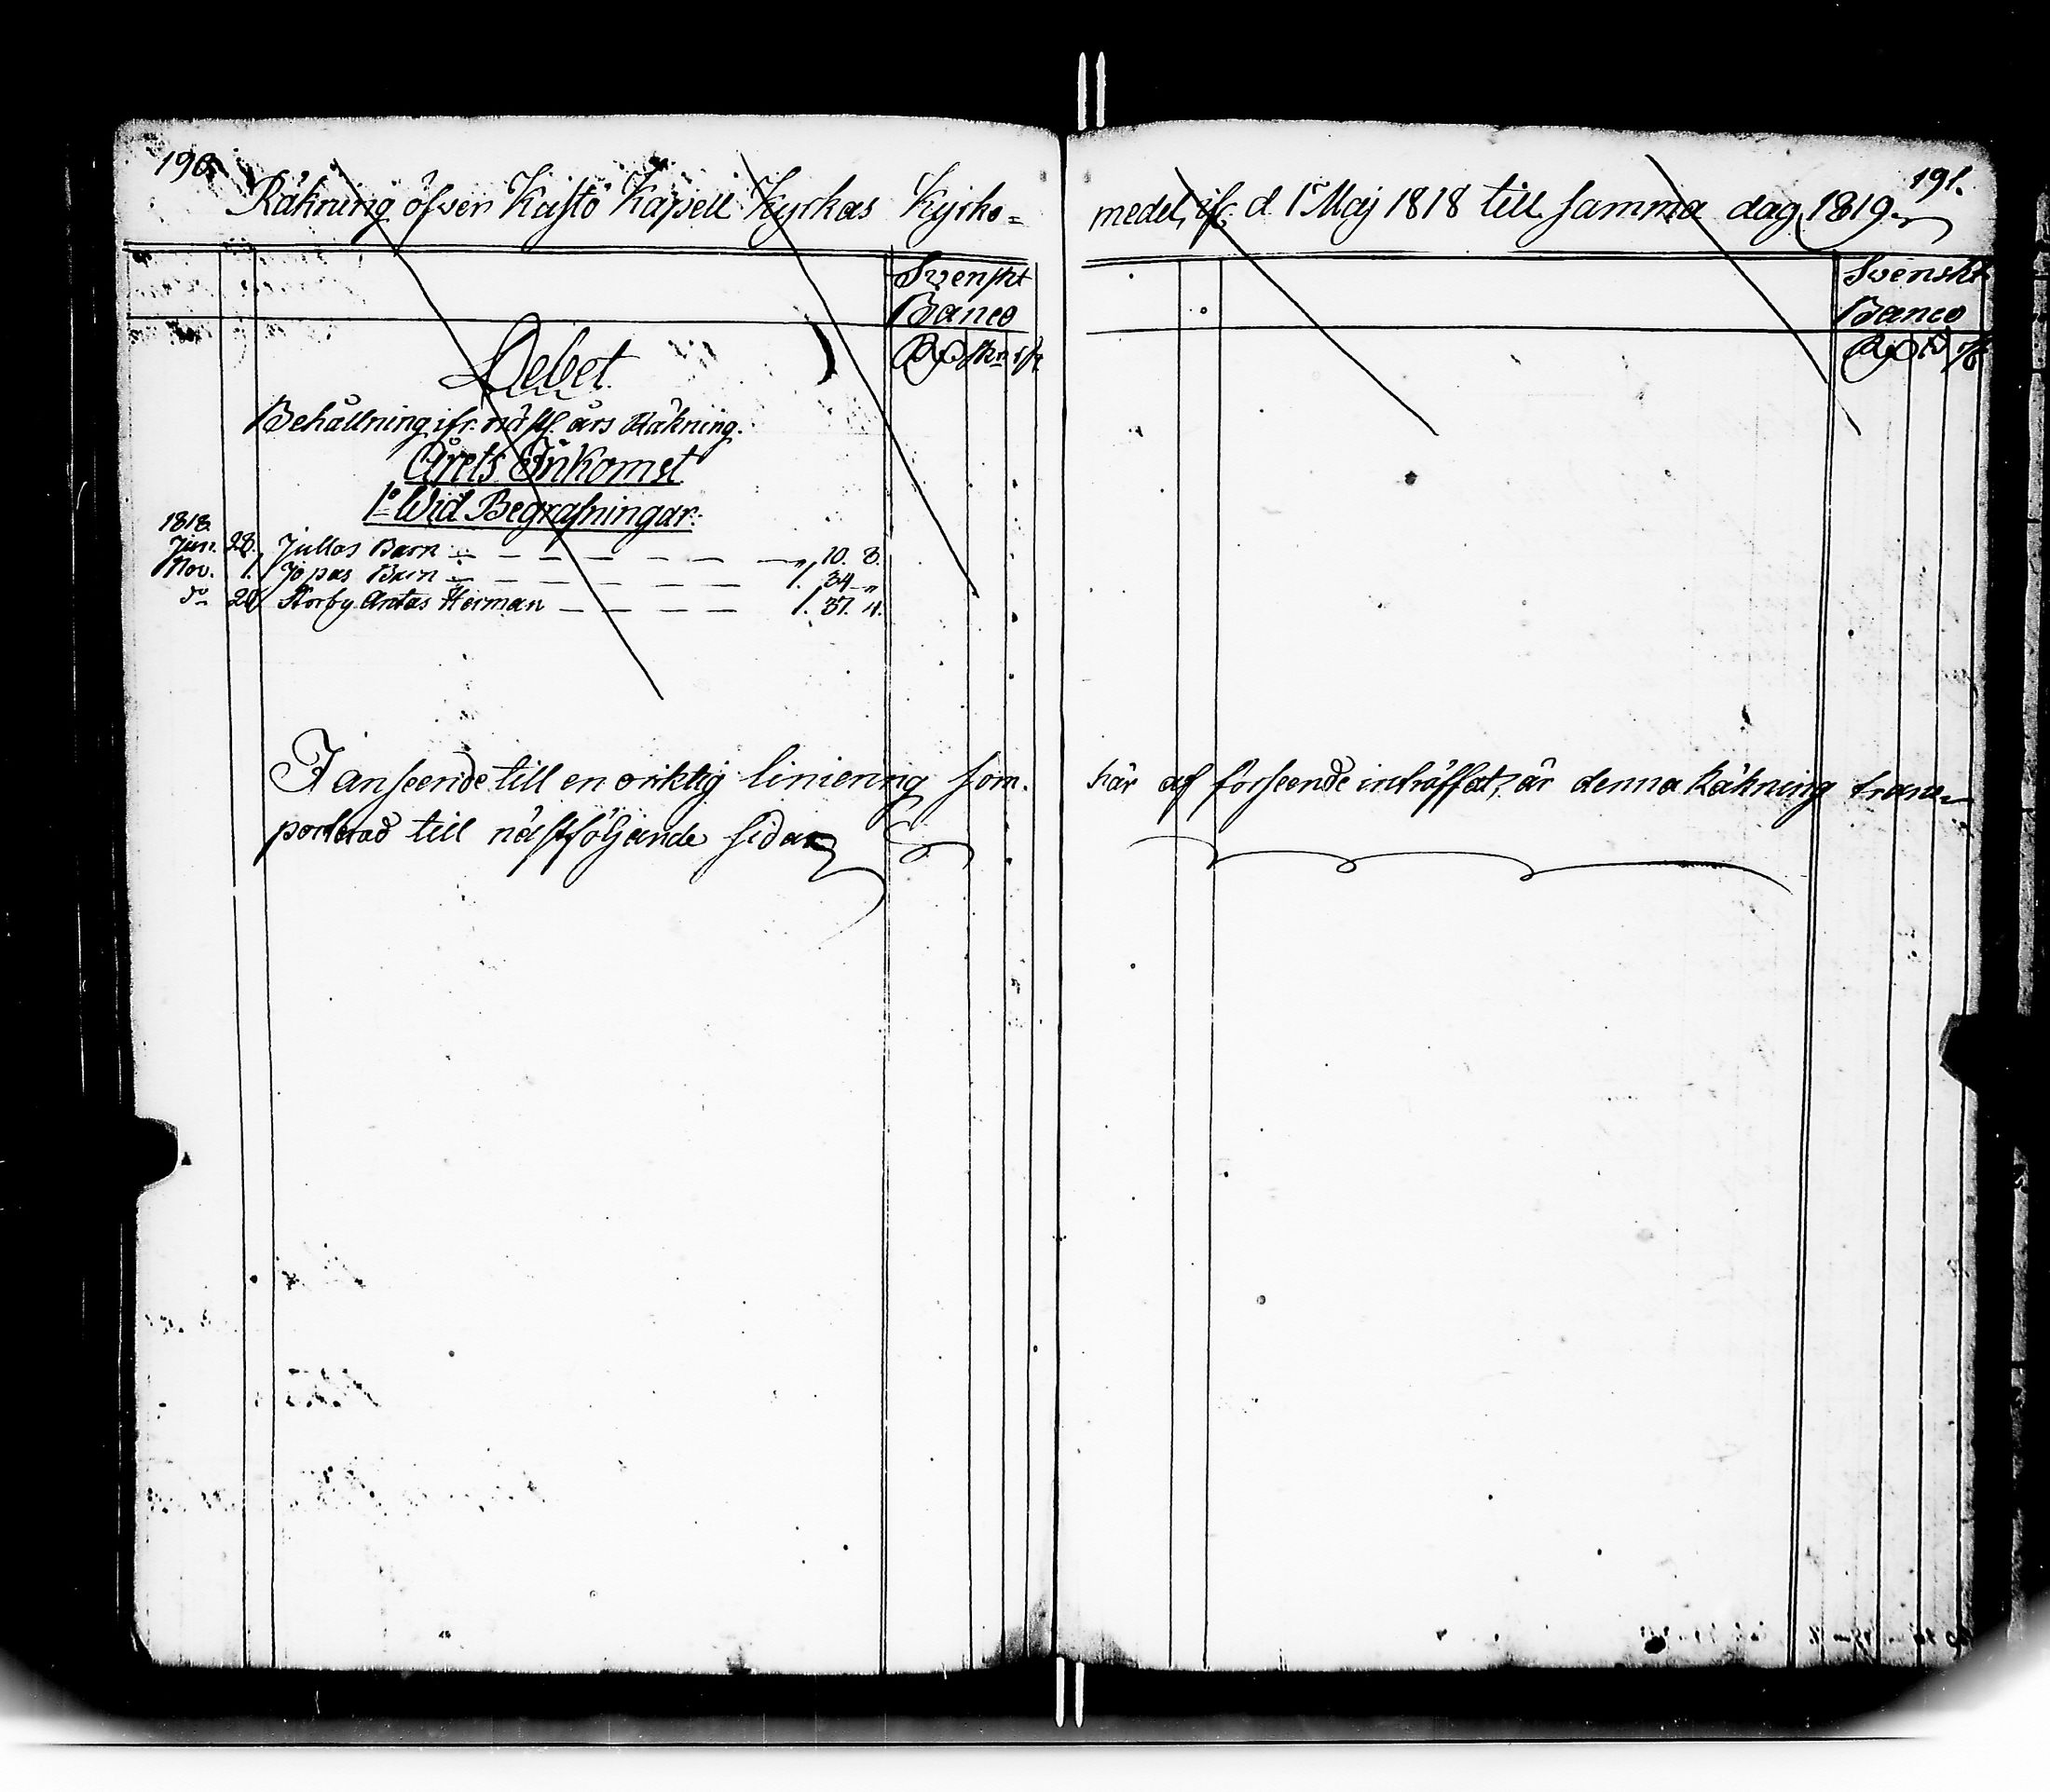 190.
Räkning öfver Kaskö Kapell Kyrkas Kyrko=
Svenskt
Banco
Debet
Behållning ifr. nästl. års Räkning.
Årets Inkomst
1o Wid Begrafningar:
1818.
Jun. 28. Jullas Barn — — — — — — — „ 10. 8.
Nov. 1. Jopas Barn — — — — — — 1. 34 „
do 29 Norby Antas Herman — — — — 1. 37. 4.
I anseende till en oriktig liniering som
porterad till nästföljande sidan
191.
medel, ifr. d. 1 Maj 1818 till samma dag 1819.
Svenskt
Banco
här af förseende inträffat, är denna Räkning trans-